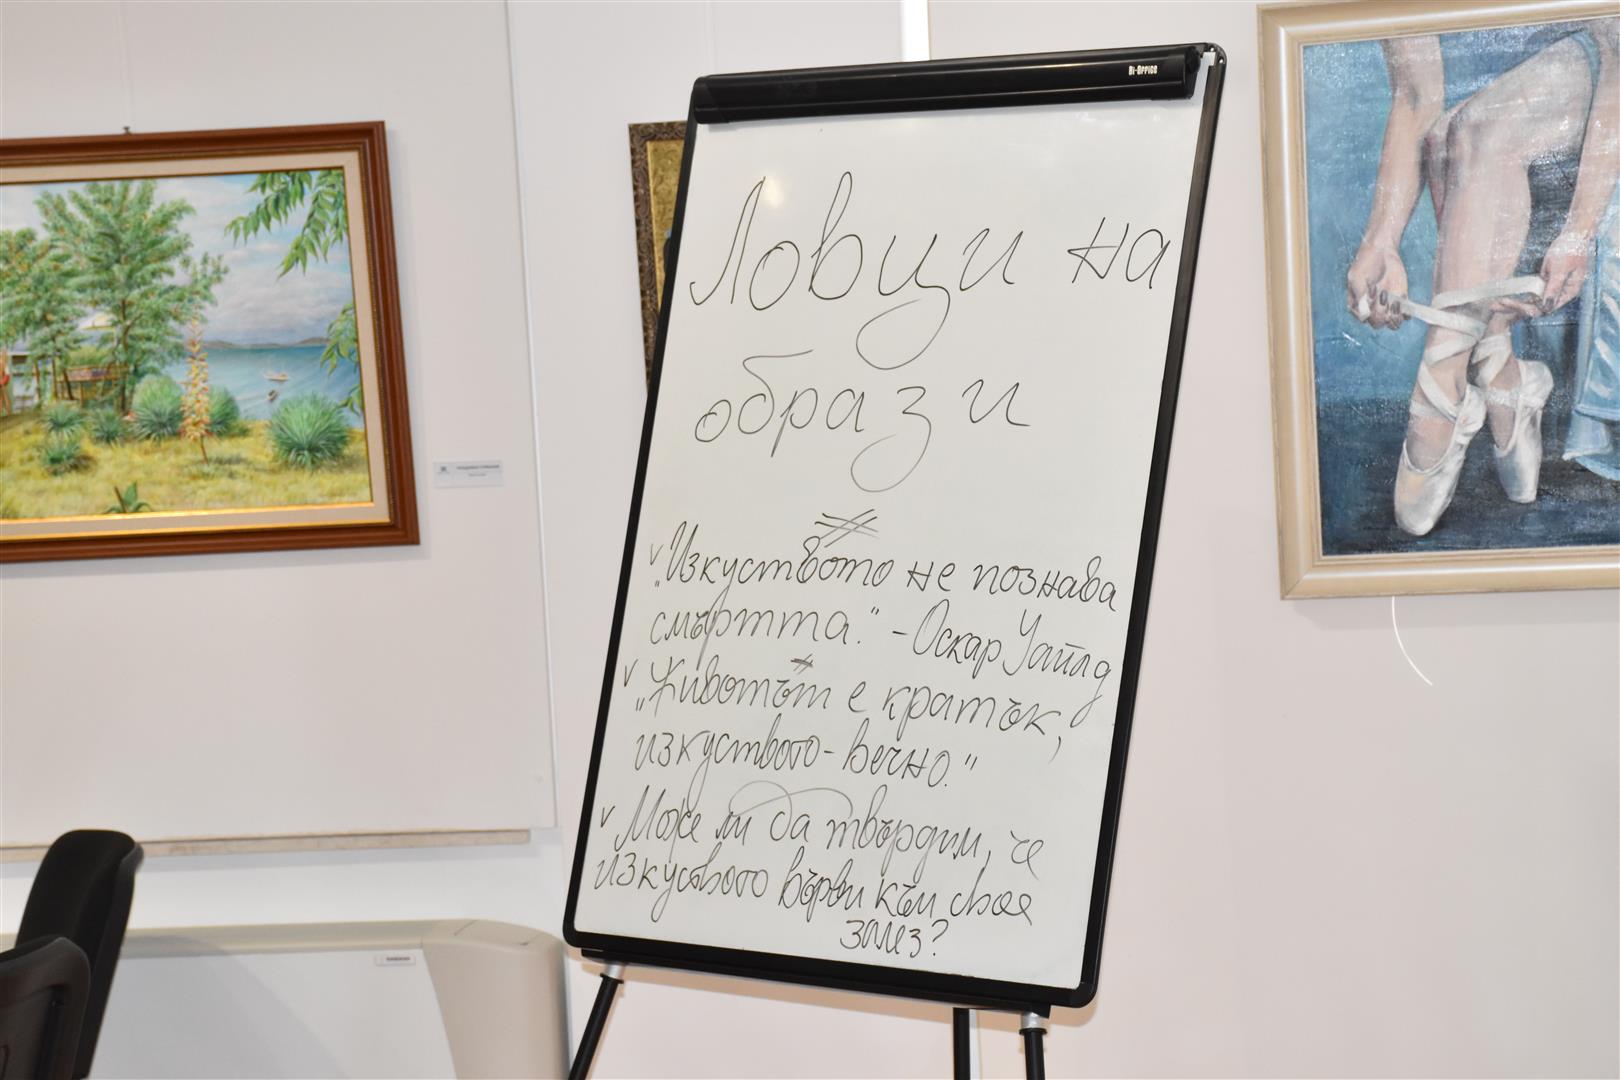 Bi-Office
Ловци на
образи
✓ „Изкуството не познава
смъртта." - Оскар Уайлд
✓ „Животът е кратък,
изкуството - вечно."
✓ Може ли да твърдим, че
изкуството върви към своя
залез?